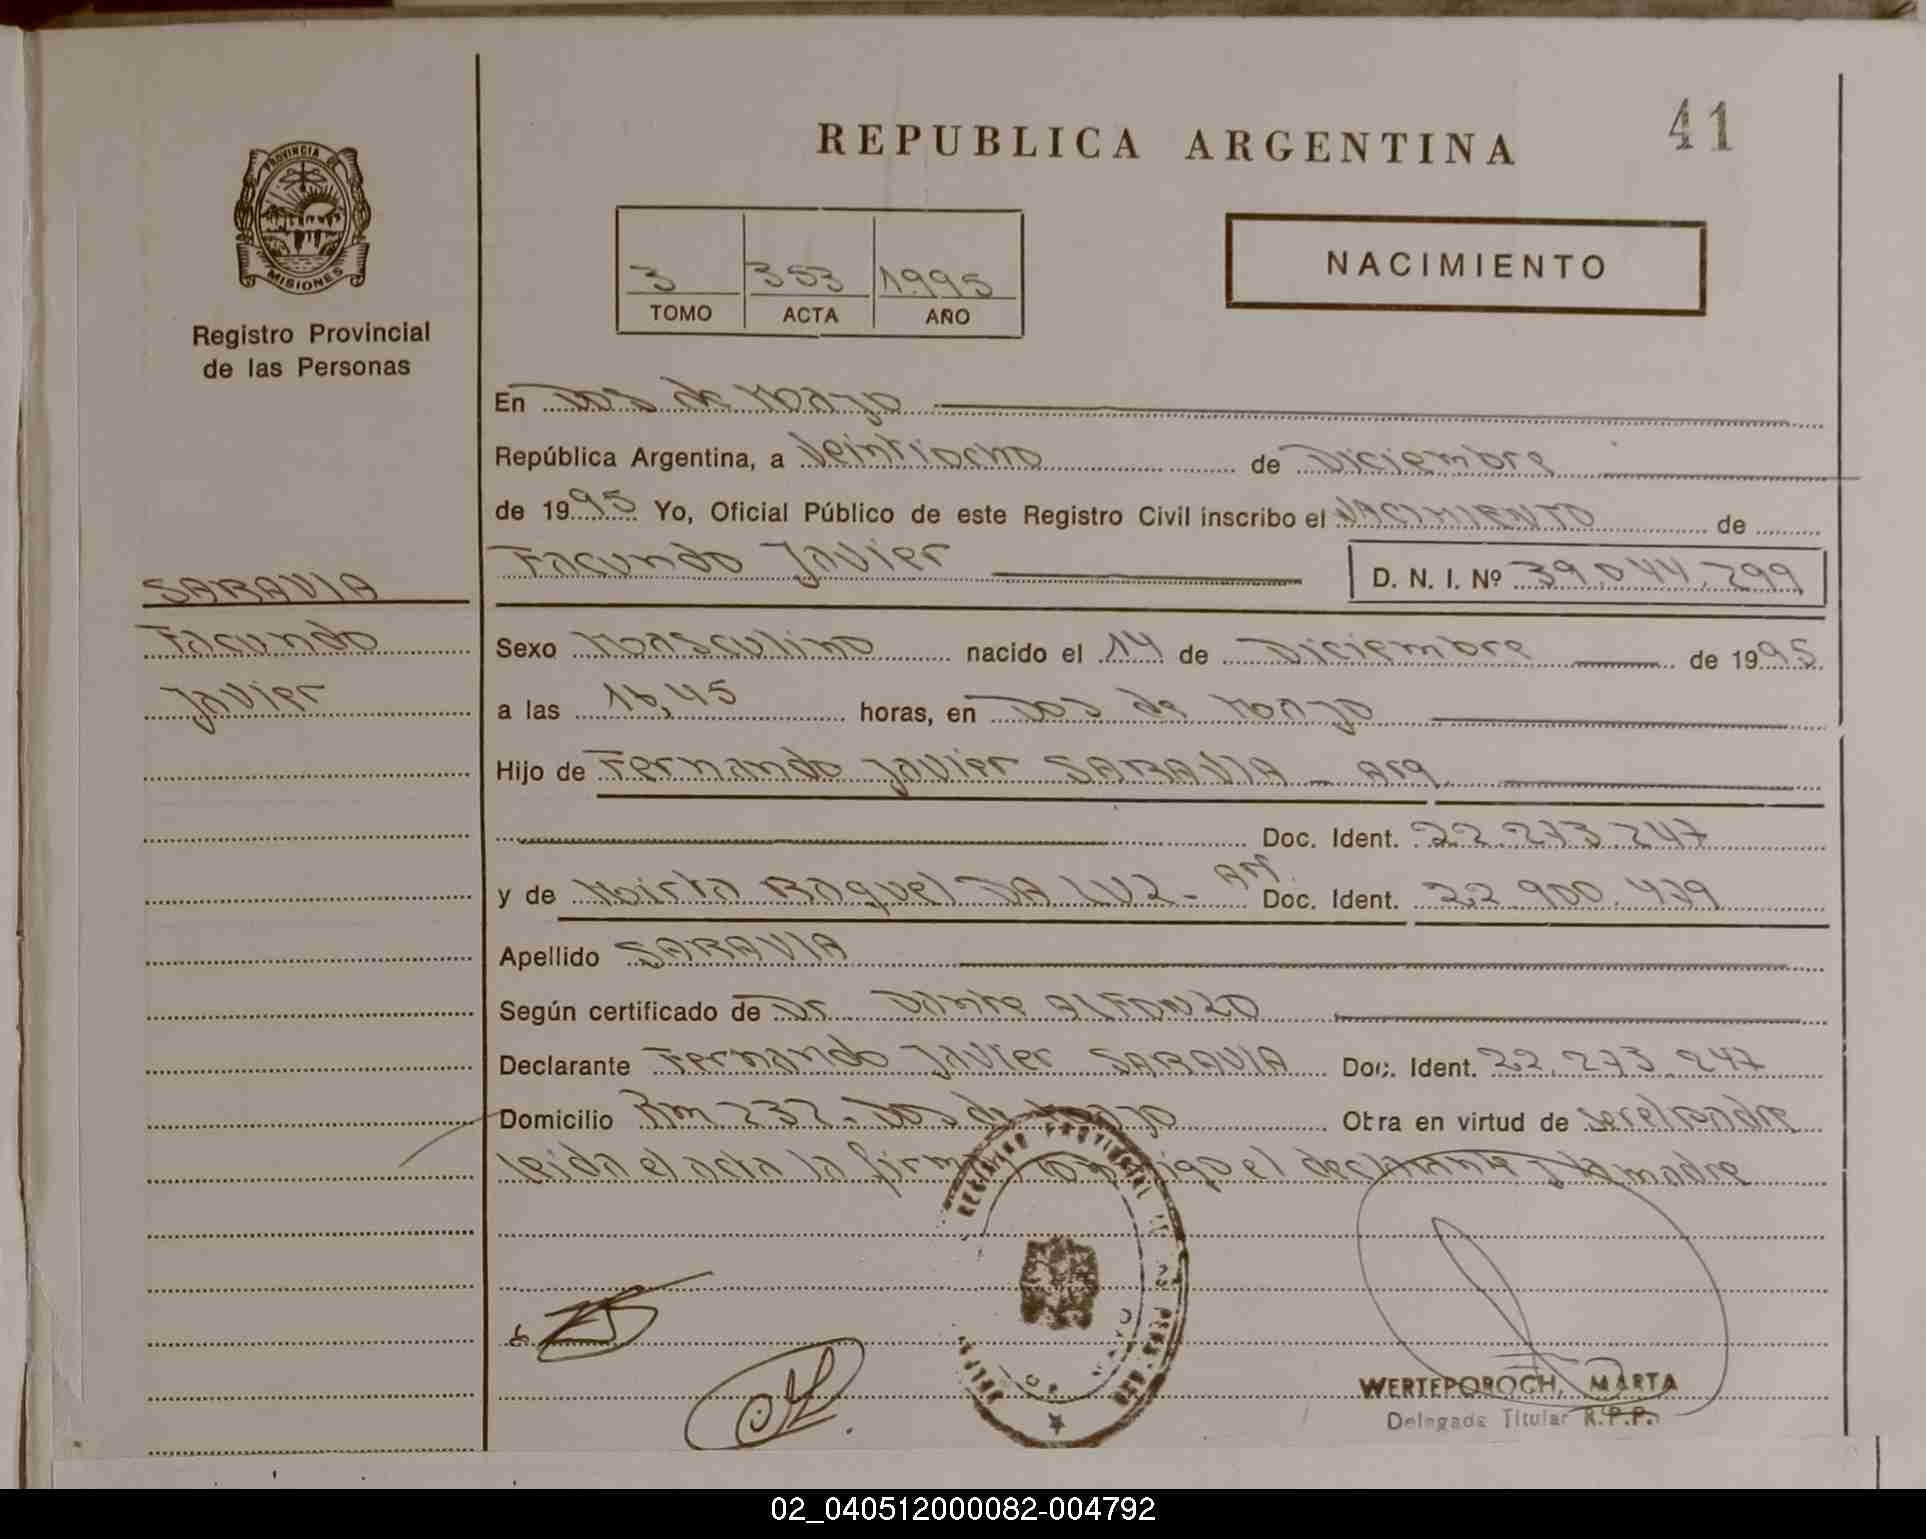 41
REPUBLICA ARGENTINA
PROVINCIA DE
MISIONES
Registro Provincial
de las Personas
3 353 1995
TOMO ACTA AÑO
NACIMIENTO
En Dos de Mayo
República Argentina, a Veintiocho de Diciembre
de 1995 Yo, Oficial Público de este Registro Civil inscribo el NACIMIENTO de
Facundo Javier D. N. I. Nº 39.044.299
SARAVIA
Facundo
Javier
Sexo Masculino nacido el 14 de Diciembre de 1995
a las 16,45 horas, en Dos de Mayo
Hijo de Fernando Javier SARAVIA - Arg.
Doc. Ident. 22.273.247
y de Mirta Raquel DA LUZ - Doc. Ident. 22.900.439
Apellido SARAVIA
Según certificado de Dr. Dante ALFONZO
Declarante Fernando Javier SARAVIA Doc. Ident. 22.273.247
Domicilio Km 232. Dos de Mayo Otra en virtud de ser el padre
leida el acta la firma conmigo el declarante y la madre
REGISTRO PROVINCIAL DE
WERTEPOROCH, MARTA
Delegada Titular R.P.P.
02_040512000082-004792